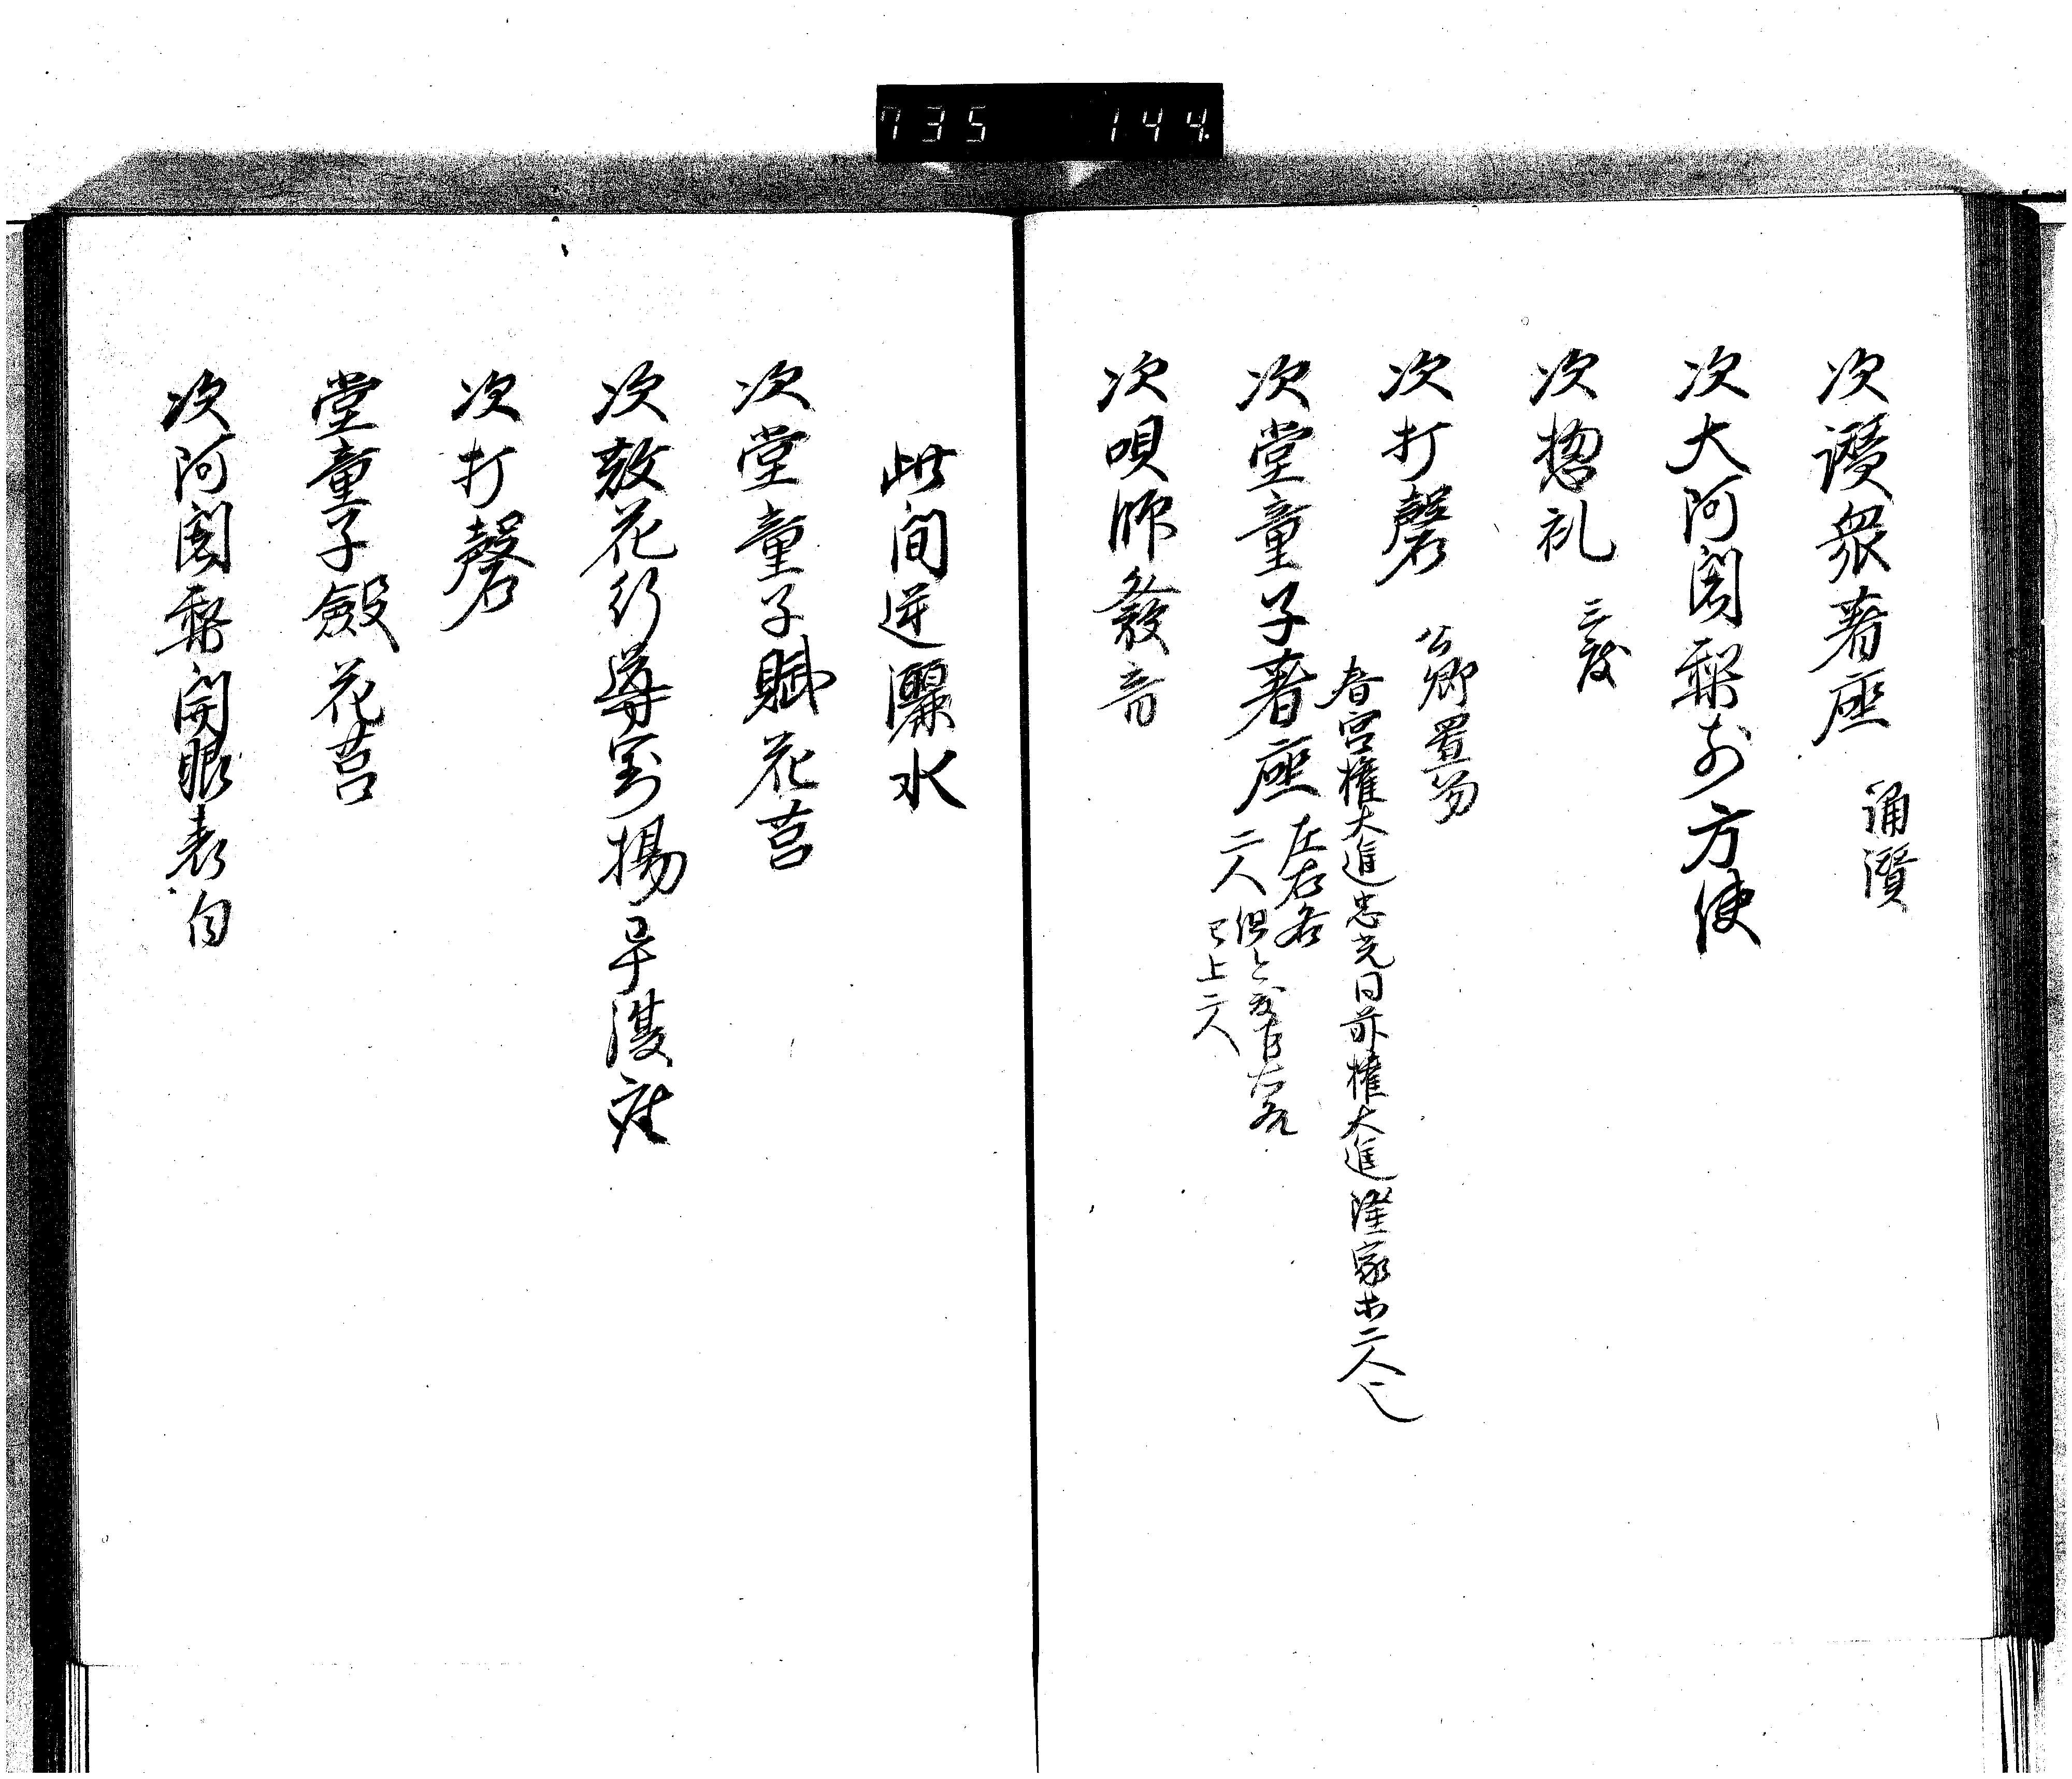 735 144
次讃衆著座 誦讃
次大阿闍梨前方便
次惣礼 三度
次打磬 公卿置笏
春宮権大進忠光日前権大進隆家木二人也
次堂童子著座 左右各二人
已上二人
次唄師發音
此間逆灑水
次堂童子賦花筥
次散花行導寳揚早復座
次打磬
堂童子斂花筥
次阿闍梨開眼表白